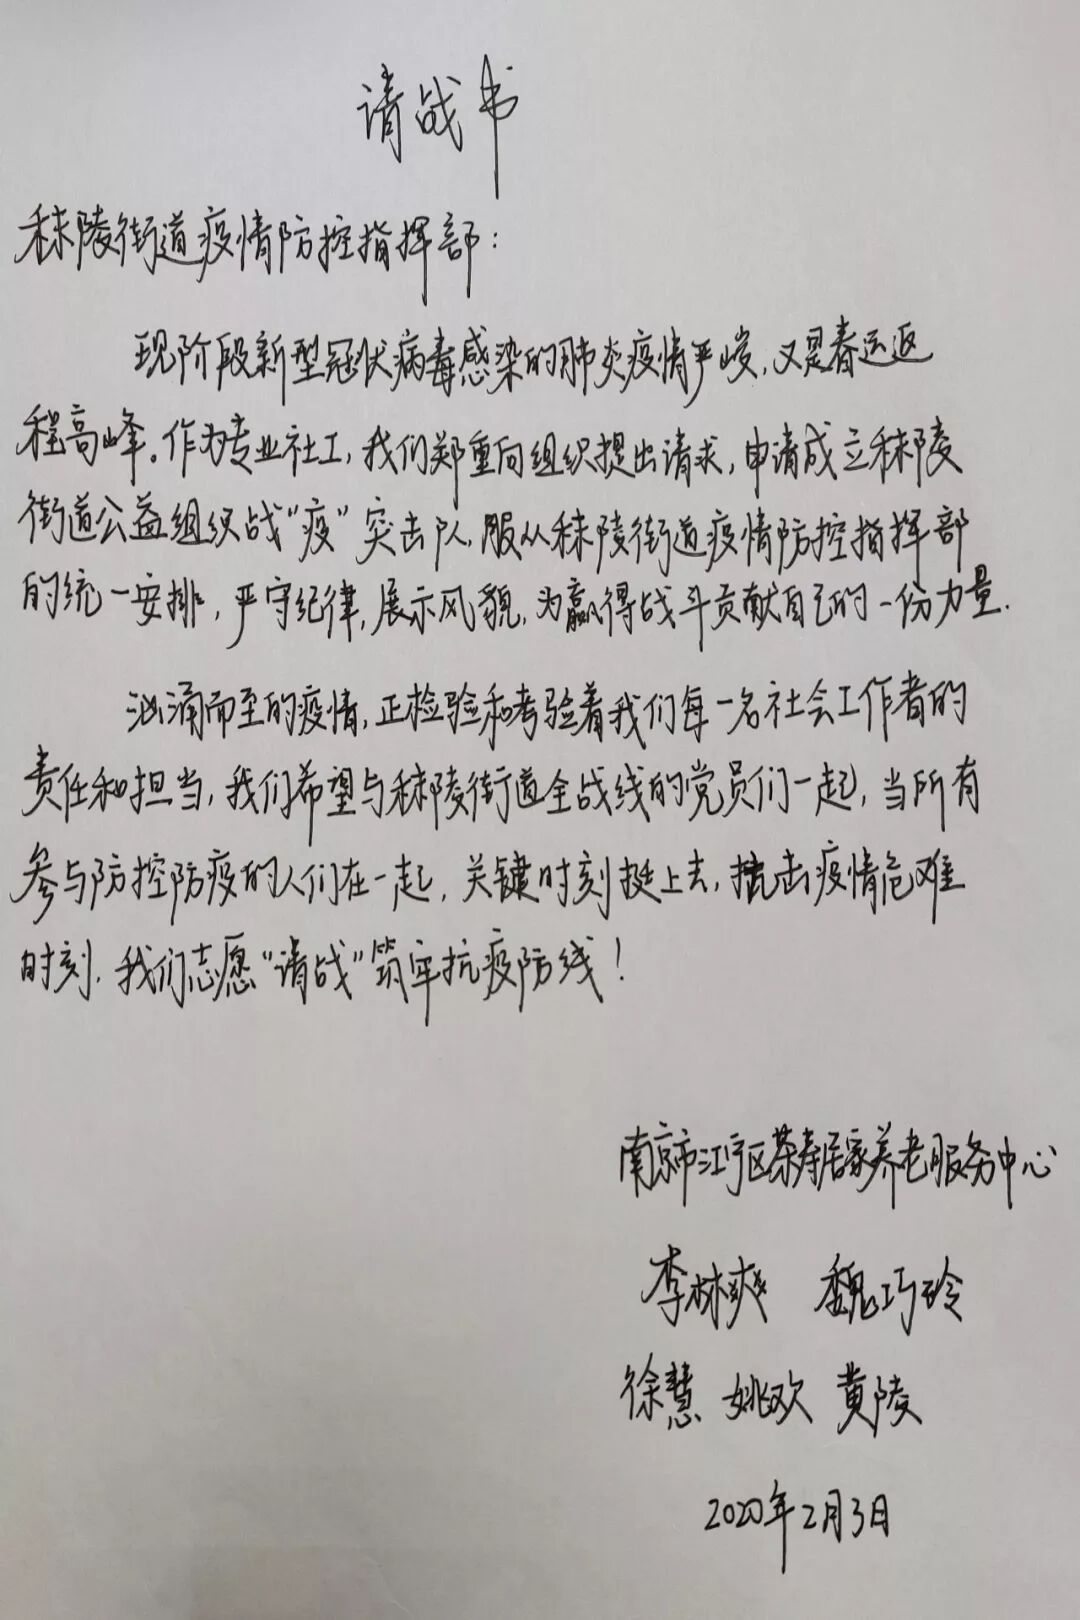 请战书
秣陵街道疫情防控指挥部：
现阶段新型冠状病毒感染的肺炎疫情严峻，又是春运返
程高峰。作为专业社工，我们郑重向组织提出请求，申请成立秣陵
街道公益组织战“疫”突击队，服从秣陵街道疫情防控指挥部
的统一安排，严守纪律，展示风貌，为赢得战斗贡献自己的一份力量.
汹涌而至的疫情，正检验和考验着我们每一名社会工作者的
责任和担当，我们希望与秣陵街道全战线的党员们一起，当所有
参与防控防疫的人们在一起，关键时刻挺上去，抗击疫情危难
时刻，我们志愿“请战”筑牢抗疫防线！
南京市江宁区茶寿居家养老服务中心
李林爽 魏巧玲
徐慧 姚欢 黄陵
2020年2月3日